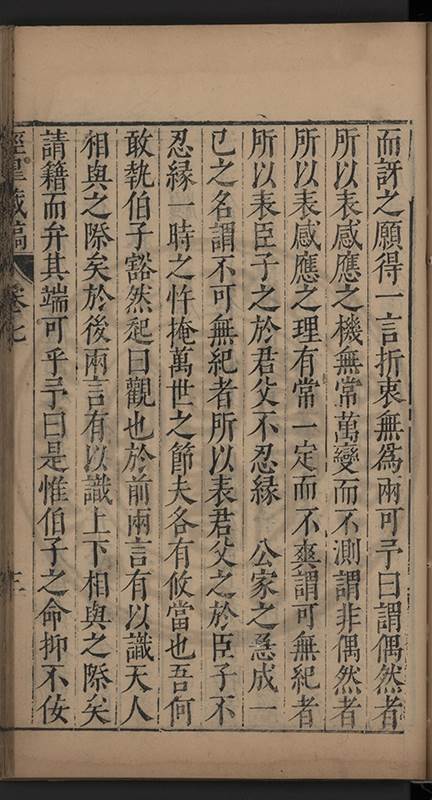 而訝之願得一言折衷無為兩可予曰謂偶然者
所以表感應之機無常萬變而不測謂非偶然者
所以表感應之理有常一定而不爽謂可無紀者
所以表臣子之於君父不忍緣　公家之急成一
己之名謂不可無紀者所以表君父之於臣子不
忍緣一時之忤掩萬世之節夫各有攸當也吾何
敢執伯子豁然起曰觀也於前兩言有以識天人
相與之際矣於後兩言有以識上下相與之際矣
請籍而弁其端可乎予曰是惟伯子之命抑不佞
涇皋藏稿　卷七　三